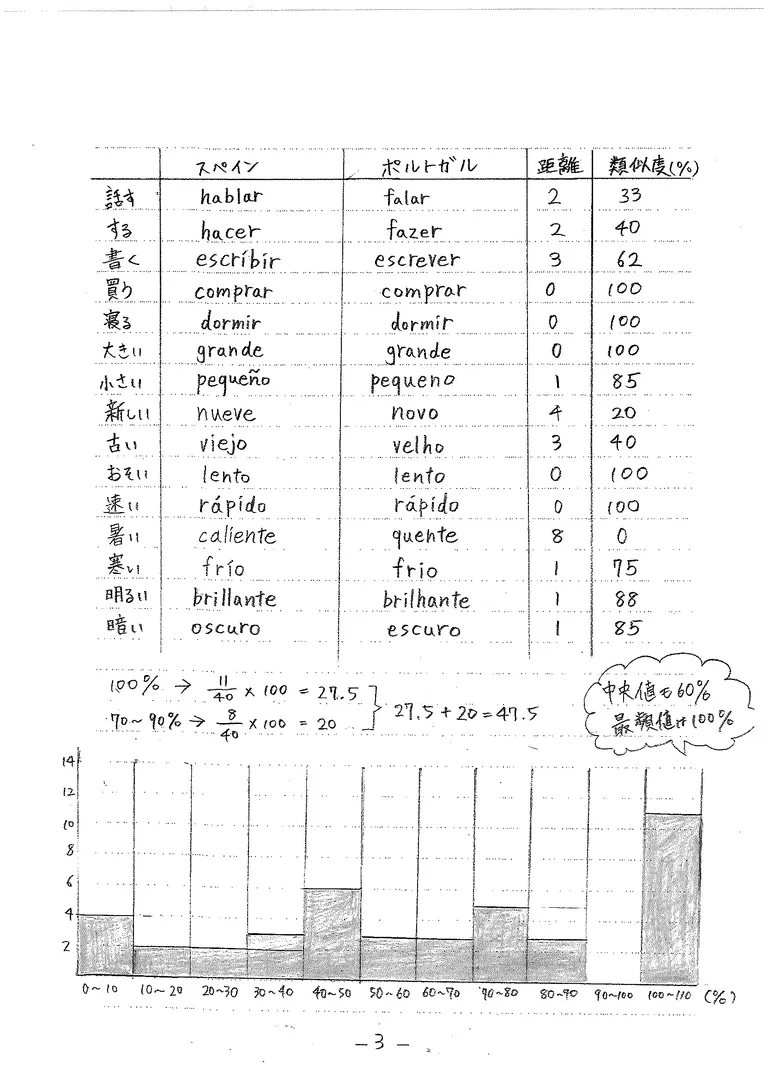 スペイン ポルトガル 距離 類似度(%)
話す hablar falar 2 33
する hacer fazer 2 40
書く escríbir escrever 3 62
買う comprar comprar 0 100
寝る dormir dormir 0 100
大きい grande grande 0 100
小さい pequeño pequeno 1 85
新しい nueve novo 4 20
古い viejo velho 3 40
おそい lento lento 0 100
速い rápido rápido 0 100
暑い caliente quente 8 0
寒い frío frio 1 75
明るい brillante brilhante 1 88
暗い oscuro escuro 1 85
100% → 11/40 × 100 = 27.5
70~90% → 8/40 × 100 = 20
27.5 + 20 = 47.5
中央値も60%
最頻値は100%
14
12
10
8
6
4
2
0~10 10~20 20~30 30~40 40~50 50~60 60~70 90~80 80~90 90~100 100~110 (%)
- 3 -